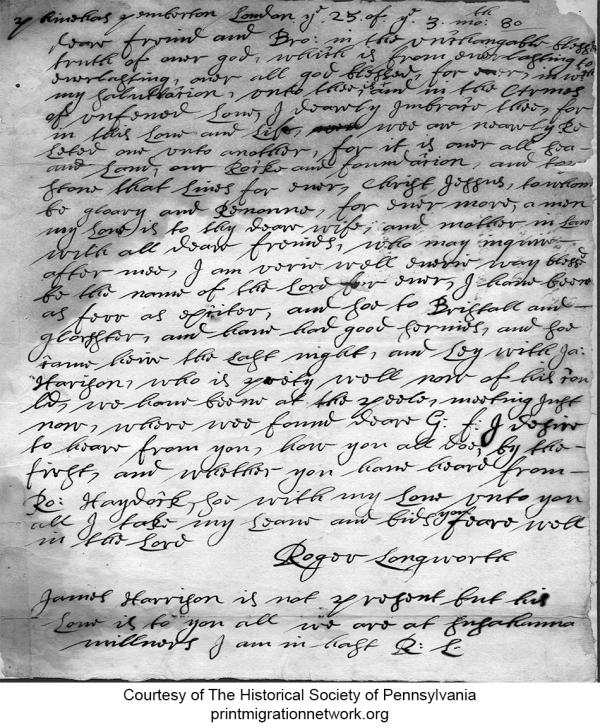 Phinehas Pemberton London ye 25 of ye 3 mo: 80
deare freind and Bro: in the unchangable blessed
truth of over god, which is from everlasting to
everlasting, over all god blessed, for ever, in wch
my salutation, unto thee, and in the Armes
of unfened Love, I dearely Imbrace thee, for
in this Love and Life, wee are nearely Re
leted one unto another, for it is over all sea
and Land, our Rocke and foundation, and
stone that lives for ever, Christ Jessus, to whom
be gloary and Renonne, for ever more, amen
my Love is to thy deare wife, and mother in Law
with all deare freinds, who may inquire
after mee, I am verie well everie way blessed
be the name of the Lord for ever, I have beene
as ferr as exsiter, and soe to Bristall and
glosster, and have had good servies, and soe
came heire the last night, and Ley with Ja:
Harison, who is prety well now of his cou
ld, we have beene at the peele, meeting Just
now, where wee found deare G: f: I desire
to heare from you, how you all doe, by the
first, and whether you have heard from
Ro: Haydock, soe with my Love unto you
all I take my Leave and bids you feare well
in the Lord
Roger Longworth
James Harrison is not present but his
Love is to you all we are at susahanna
millners I am in hast R: L:
Courtesy of The Historical Society of Pennsylvania
printmigrationnetwork.org